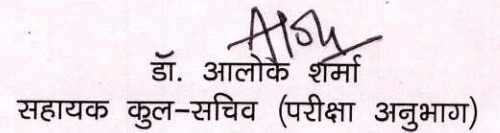 डॉ. आलोक शर्मा
सहायक कुल-सचिव (परीक्षा अनुभाग)